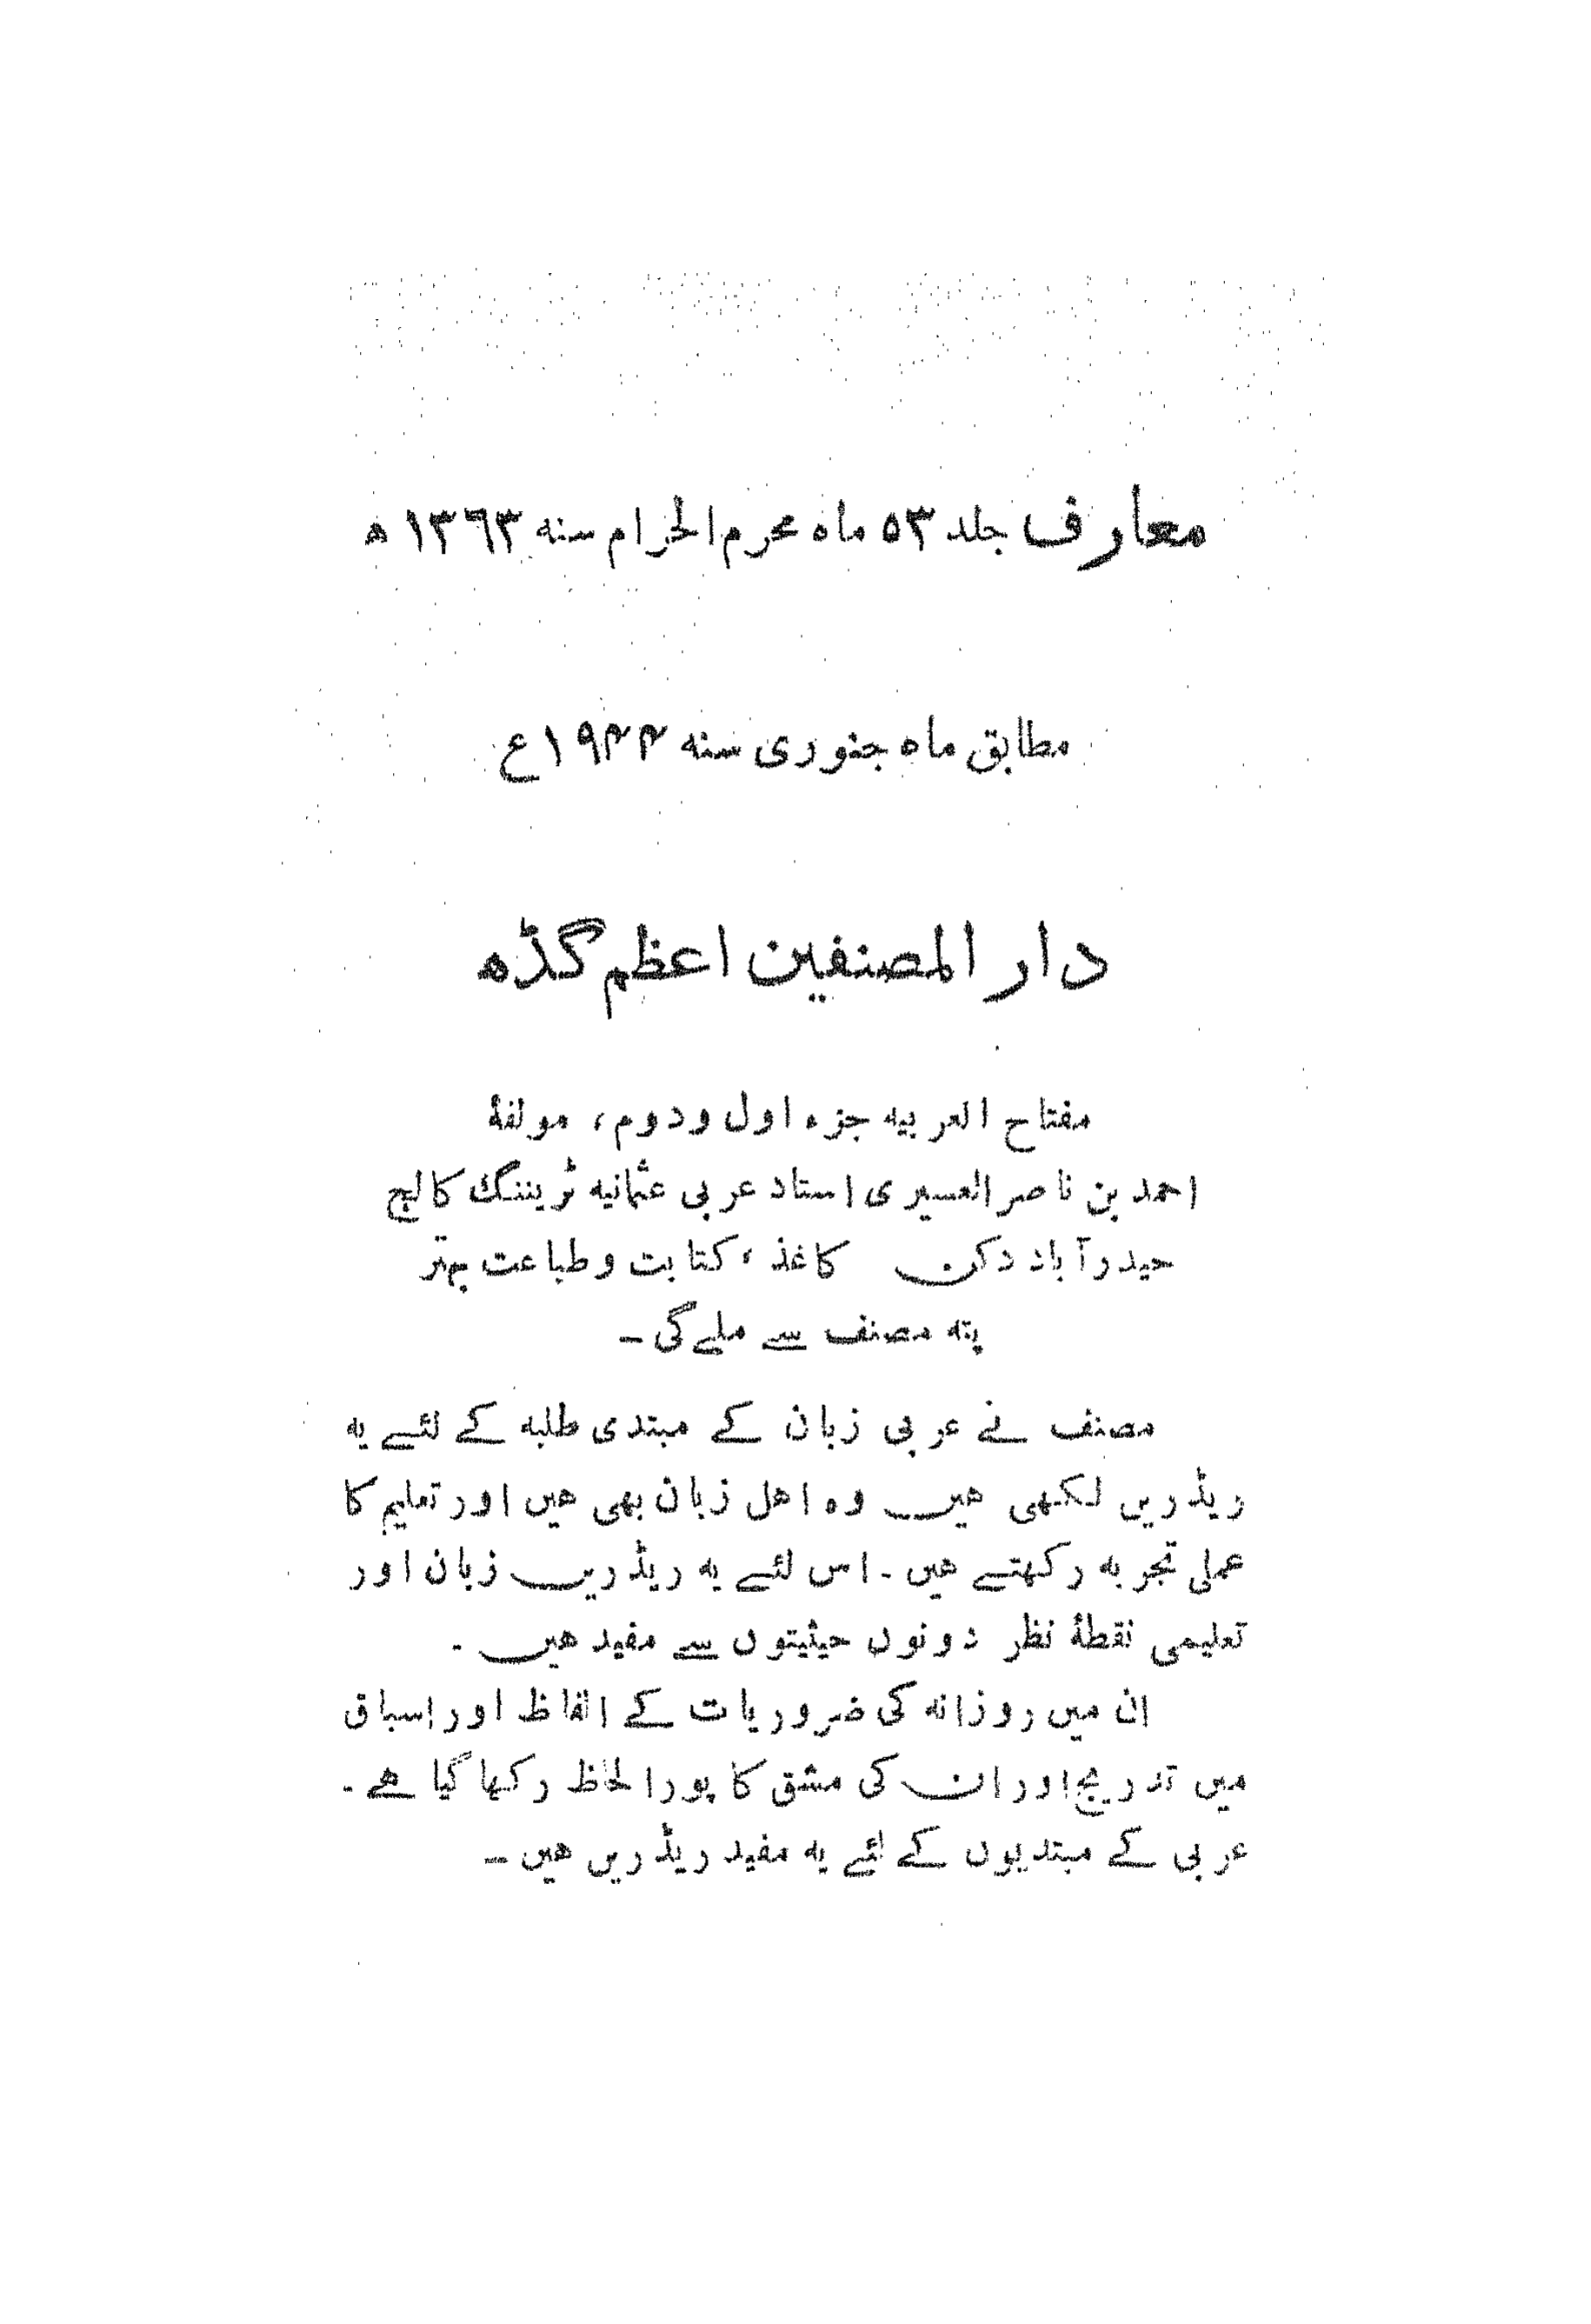 معارف جلد ۵۳ ماہ محرم الحرام سنہ ۱۳٦۳ ھ
مطابق ماہ جنوری سنہ ۱۹۴۴ع
دار المصنفین اعظم گڈھ
مفتاح العربیہ جزء اول ودوم، مولفۂ
احمد بن ناصر العسیری استاد عربی عثمانیہ ٹریننگ کالج
حیدرآباد دکن کاغذ، کتابت وطباعت بہتر
پتہ مصنف سے ملےگی –
مصنف نے عربی زبان کے مبتدی طلبہ کے لئے یہ
ریڈریں لکھی ھیں وہ اھل زبان بھی ھیں اور تعلیم کا
عملی تجربہ رکھتے ھیں ۔ اس لئے یہ ریڈریں زبان اور
تعلیمی نقطۂ نظر دونوں حیثیتوں سے مفید ھیں ۔
ان میں روزانہ کی ضروریات کے الفاظ اور اسباق
میں تدریج اور ان کی مشق کا پورا لحاظ رکھا گیا ھے ۔
عربی کے مبتدیوں کے لئے یہ مفید ریڈریں ھیں –